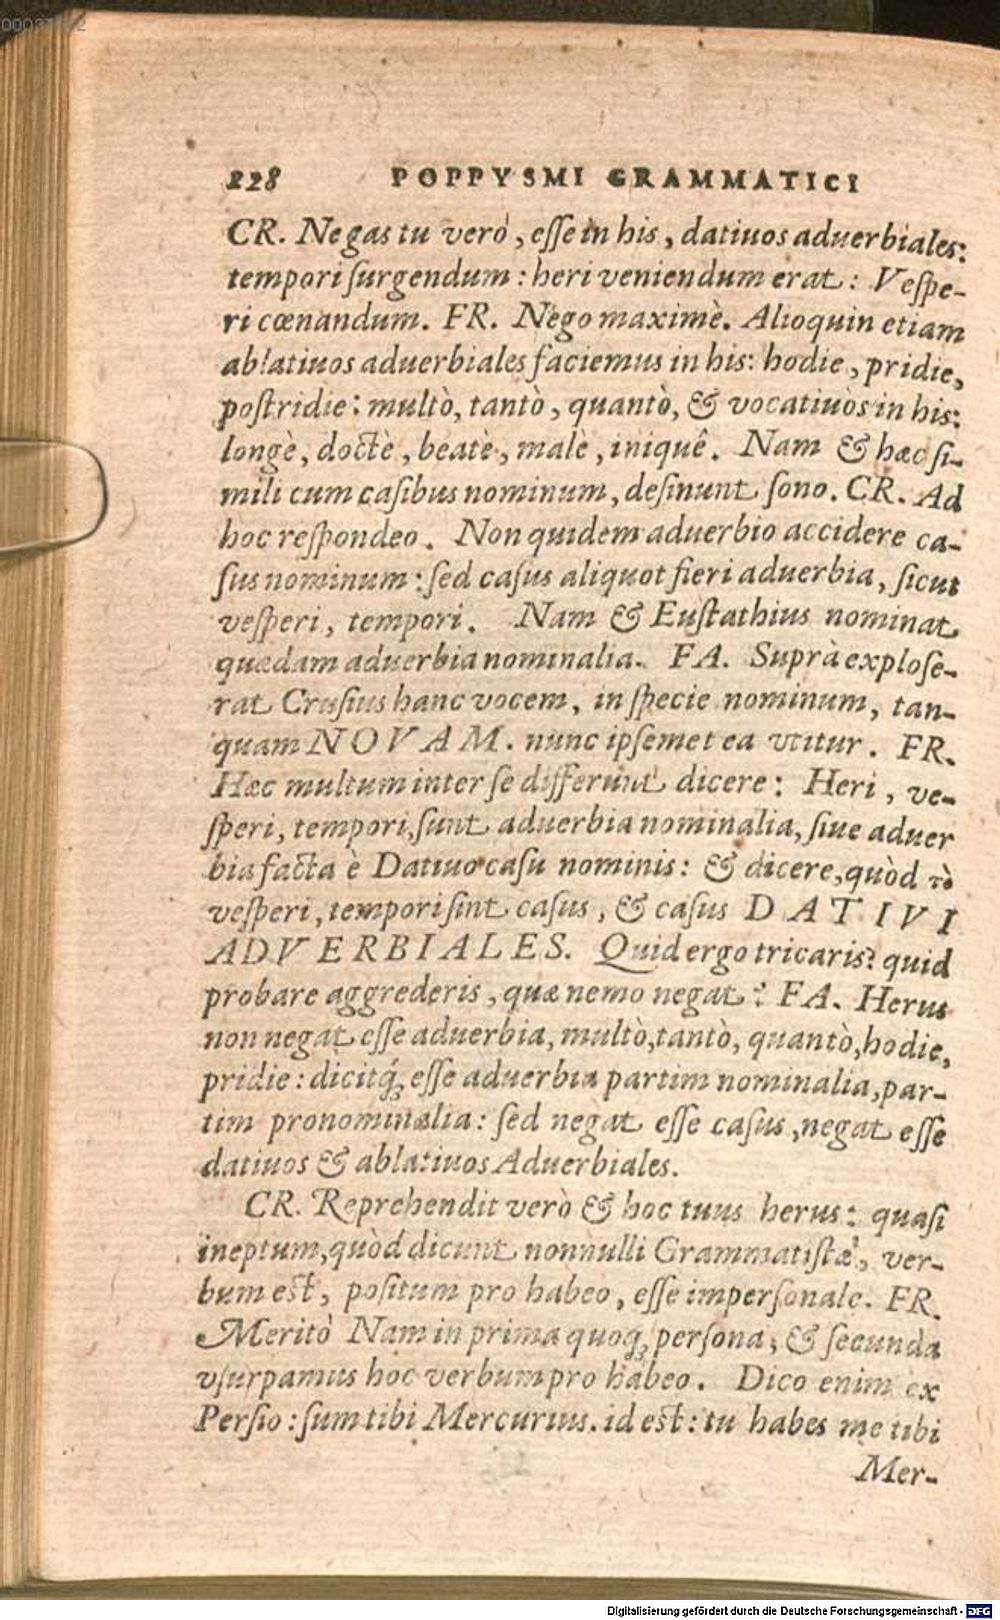 228 POPPYSMI GRAMMATICI
CR. Negas tu verò, eſſe in his, datiuos aduerbiales:
tempori ſurgendum: heri veniendum erat: Veſpe-
ri cœnandum. FR. Nego maximè. Alioquin etiam
ablatiuos aduerbiales faciemus in his: hodie, pridie,
poſtridie: multò, tantò, quantò, & vocatiuos in his:
longè, doctè, beatè, malè, iniquê. Nam & hæc ſi-
mili cum caſibus nominum, deſinunt ſono. CR. Ad
hoc reſpondeo. Non quidem aduerbio accidere ca-
ſus nominum: ſed caſus aliquot fieri aduerbia, ſicut
veſperi, tempori. Nam & Euſtathius nominat
quædam aduerbia nominalia. FA. Suprà exploſe-
rat Cruſius hanc vocem, in ſpecie nominum, tan-
quam NOVAM. nunc ipſemet ea vtitur. FR.
Hæc multum inter ſe differunt dicere: Heri, ve-
ſperi, tempori, ſunt aduerbia nominalia, ſiue aduer
bia facta è Datiuo caſu nominis: & dicere, quòd τὸ
veſperi, tempori ſint caſus, & caſus DATIVI
ADVERBIALES. Quid ergo tricaris? quid
probare aggrederis, quæ nemo negat? FA. Herus
non negat eſſe aduerbia, multò, tantò, quantò, hodie,
pridie: dicitq́ꝫ eſſe aduerbia partim nominalia, par-
tim pronominalia: ſed negat eſſe caſus, negat eſſe
datiuos & ablatiuos Aduerbiales.
CR. Reprehendit verò & hoc tuus herus: quaſi
ineptum, quòd dicunt nonnulli Grammatiſtæ, ver-
bum eſt, poſitum pro habeo, eſſe imperſonale. FR.
Meritò Nam in prima quoqꝫ perſona, & ſecunda
vſurpamus hoc verbum pro habeo. Dico enim ex
Perſio: ſum tibi Mercurius. id eſt: tu habes me tibi
Mer-
Digitalisierung gefördert durch die Deutsche Forschungsgemeinschaft - DFG